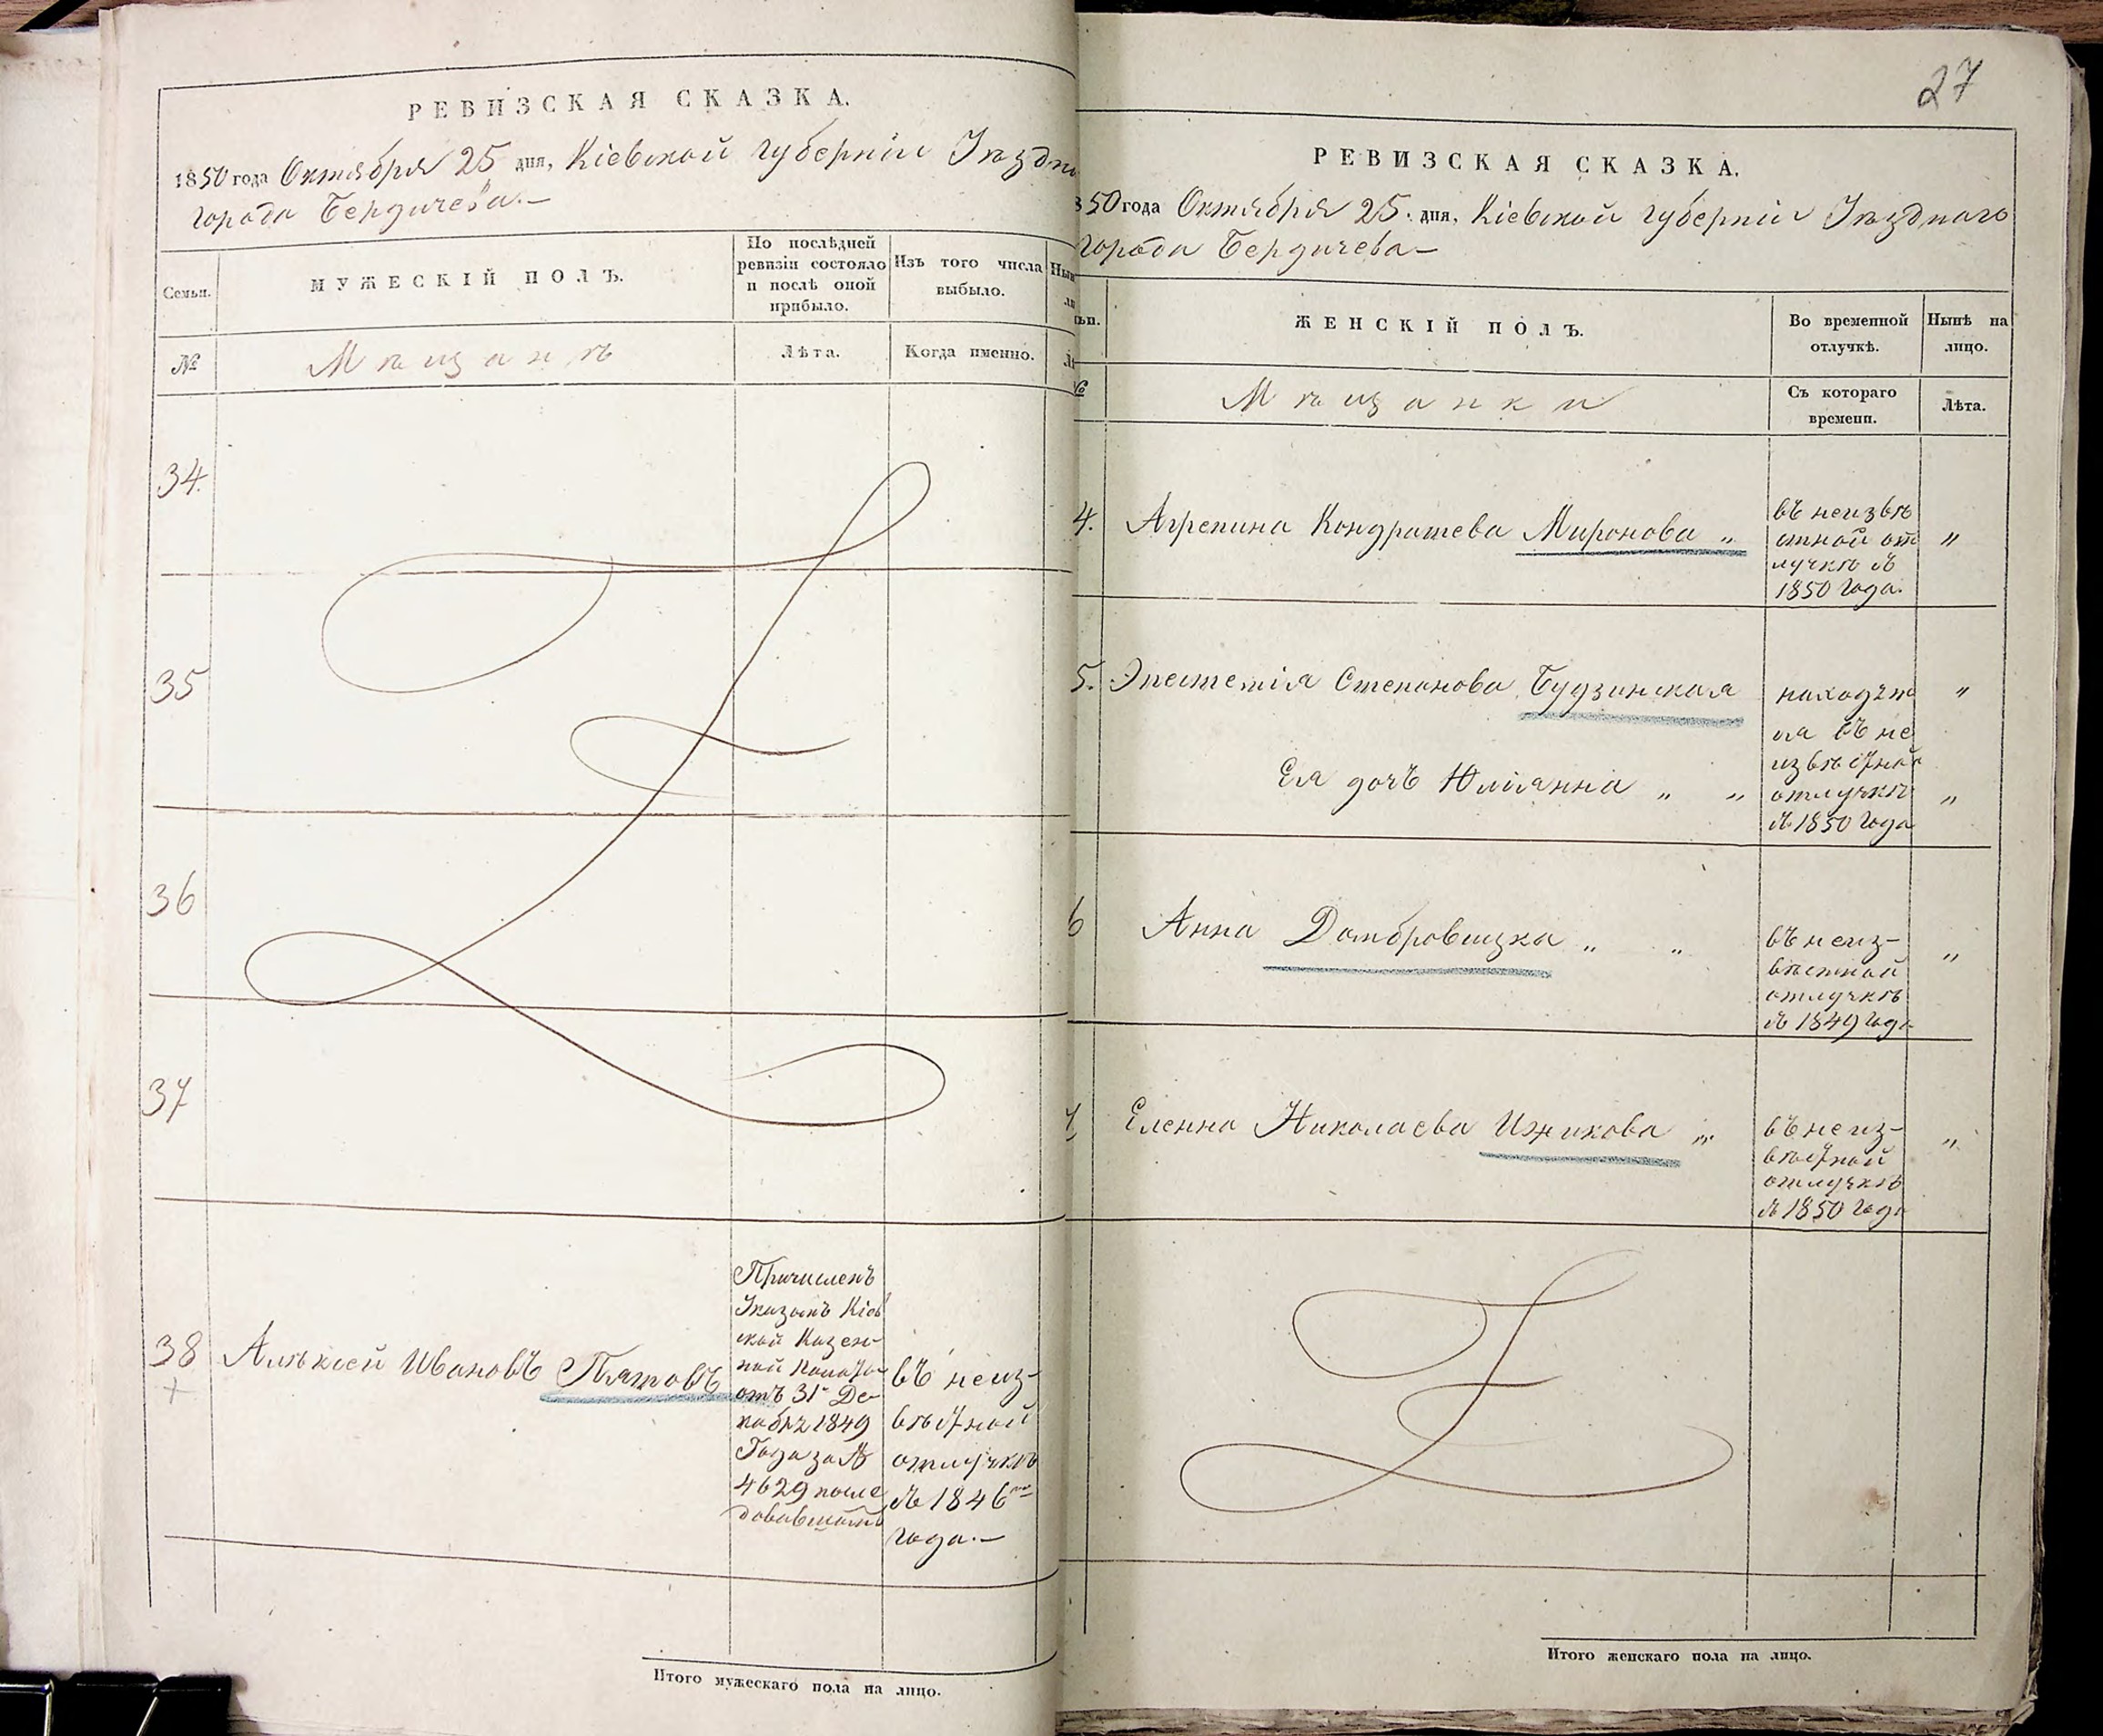 РЕВИЗСКАЯ СКАЗКА.
1850 года Октября 25 дня, Кіевской губерніи Уѣздна
города Бердичева.—
Семьи.
МУЖЕСКІЙ ПОЛЪ.
По послѣдней
ревизіи состояло
и послѣ оной
прибыло.
Изъ того числа
выбыло.
№
Мѣщанѣ
Лѣта.
Когда именно.
34.
35
36
37
38
Алѣксей Ивановъ Пятовъ
Причисленъ
Указомъ Кіев
ской Казен-
ной Палаты
отъ 31 Де-
кабря 1849
Года за №
4629 после
довавшимъ
въ неиз-
вѣстной
отлучкѣ
съ 1846го
года.—
Итого мужескаго пола на лицо.
27
РЕВИЗСКАЯ СКАЗКА.
850 года Октября 25. дня, Кіевской губерніи Уѣзднаго
города Бердичева—
ьи.
ЖЕНСКІЙ ПОЛЪ.
Во временной
отлучкѣ.
Нынѣ на
лицо.
№
Мѣщанки
Съ котораго
времени.
Лѣта.
4. Агрепина Кондратева Миронова „
въ неизвѣ
стной от
лучкѣ съ
1850 года.
„
5. Эпестемія Степанова Будзинская
Ея дочъ Юліянна „ „
находит
ся въ не
извѣстной
отлучкѣ
съ 1850 года
„
„
6 Анна Домбровицка „ „
въ неиз-
вѣстной
отлучкѣ
съ 1849 года
„
7 Еленна Николаева Ижикова „
въ неиз-
вѣстной
отлучкѣ
съ 1850 года
„
Итого женскаго пола на лицо.